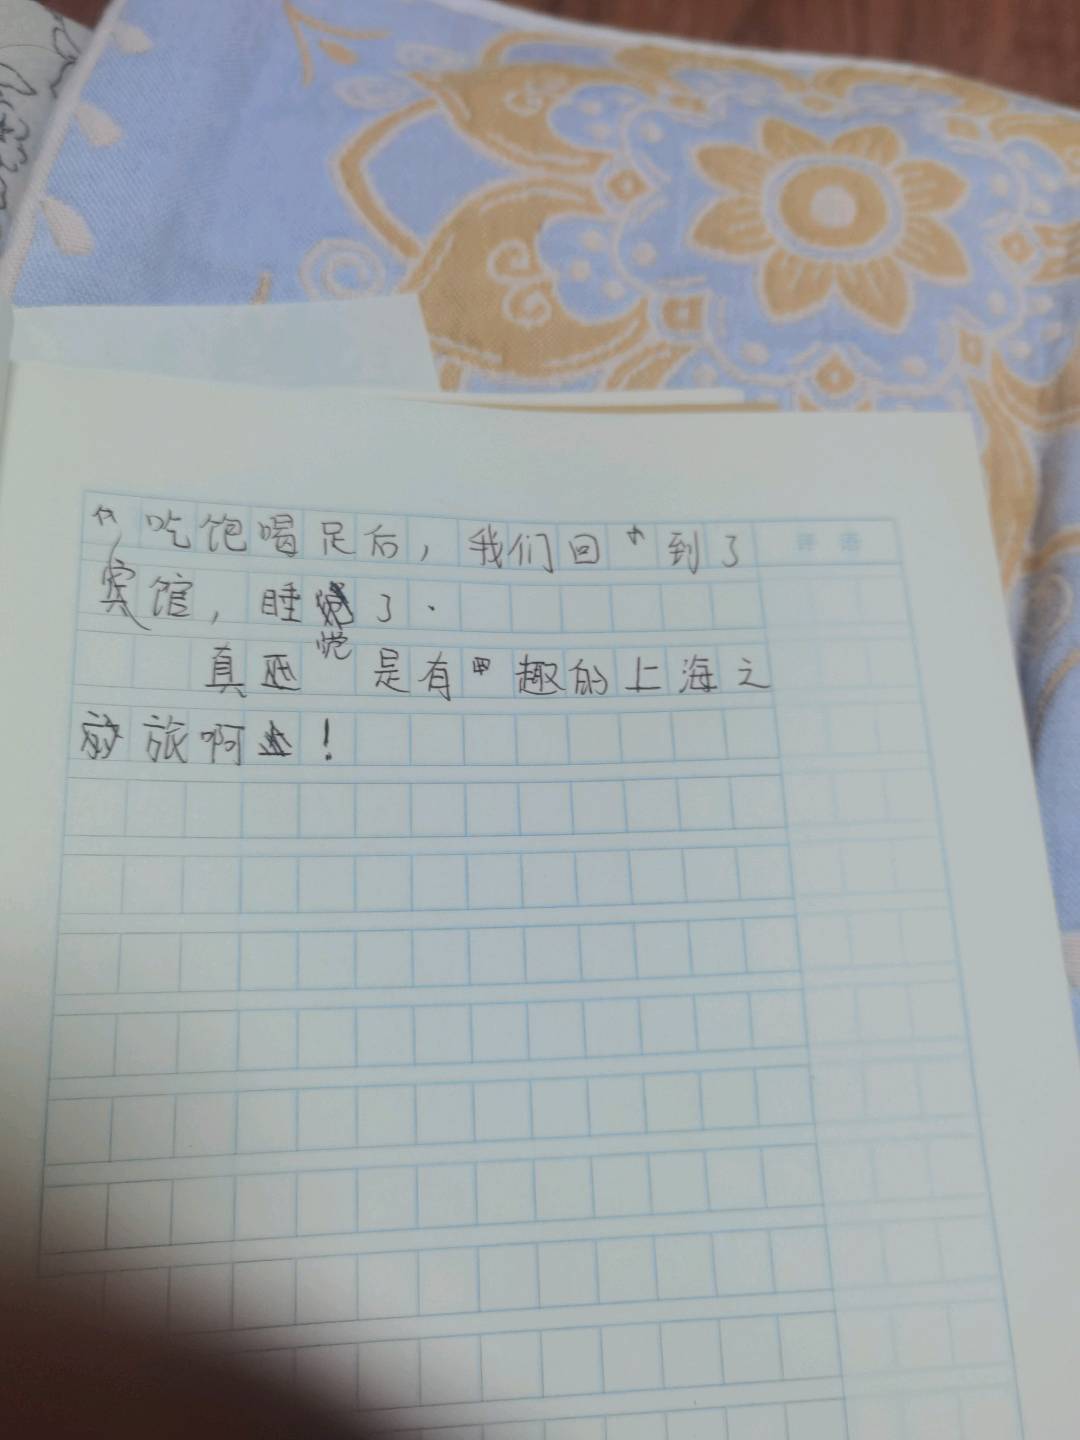 吃饱喝足后，我们回到了
评语
宾馆，睡觉了.
真是有趣的上海之
旅啊！